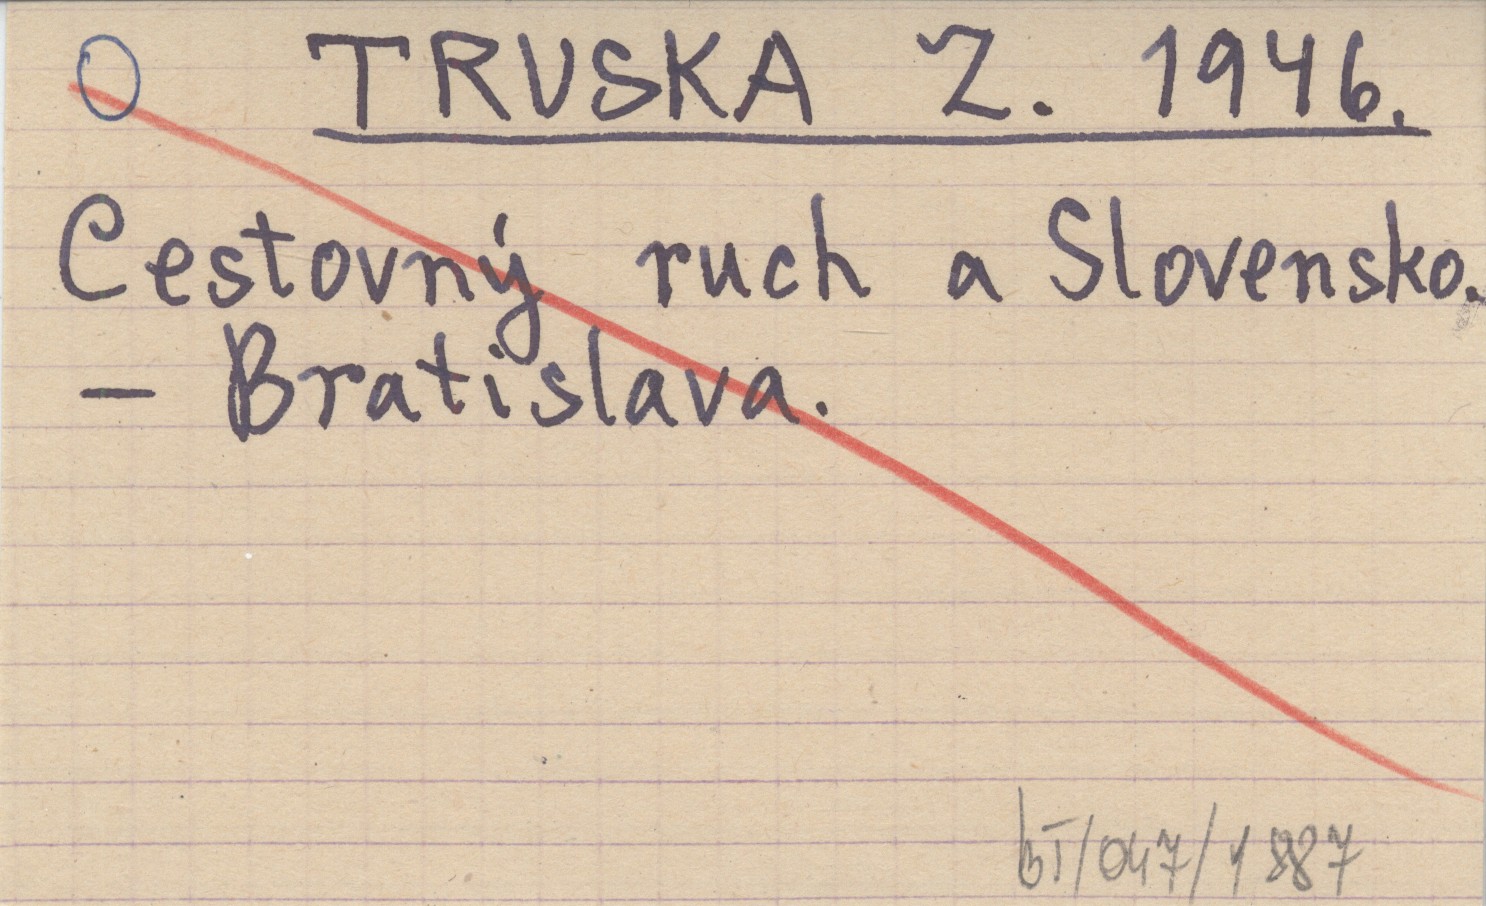 O TRUSKA Z. 1946.
Cestovný ruch a Slovensko.
– Bratislava.
bI/047/1887